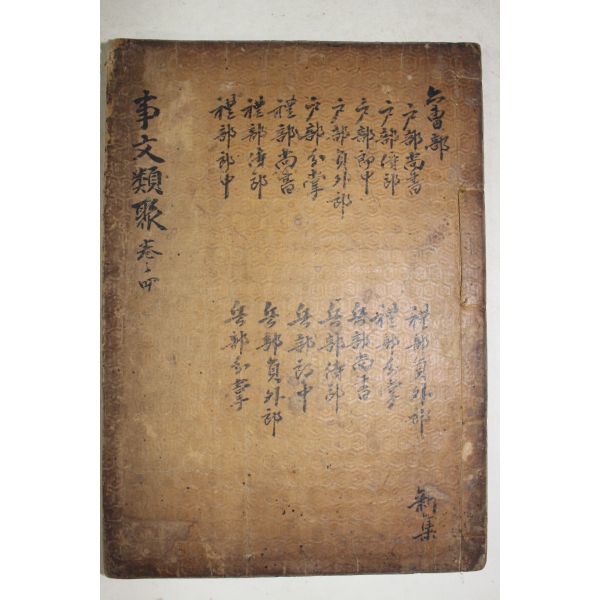 事文類聚 卷之四
六曺部
戶部尚書
戶部侍郎
戶部郎中
戶部員外郎
戶部分掌
禮部尚書
禮部侍郎
禮部郎中
禮部員外郎
禮部分掌
兵部尚書
兵部侍郎
兵部郎中
兵部員外郎
兵部分掌
新集